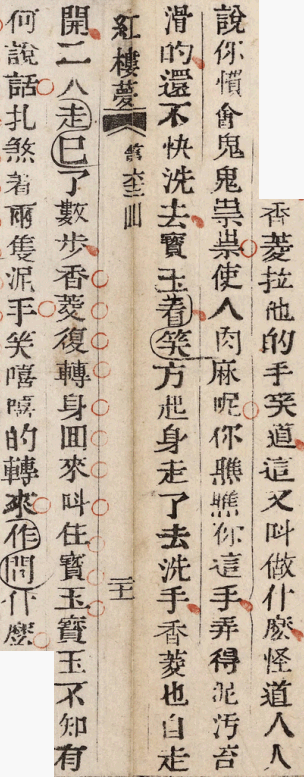 香菱拉他的手笑道這又叫做什麽怪道人人
說你慣會鬼鬼祟祟使人肉麻呢你瞧瞧你這手弄得泥汚苔
滑的還不快洗去寶玉看笑方起身走了去洗手香菱也自走
紅樓夢 第 回 三十
開二八走已了數步香菱復轉身回來叫住寶玉寶玉不知有
何說話扎煞着兩隻泥手笑嘻嘻的轉來作問什麽